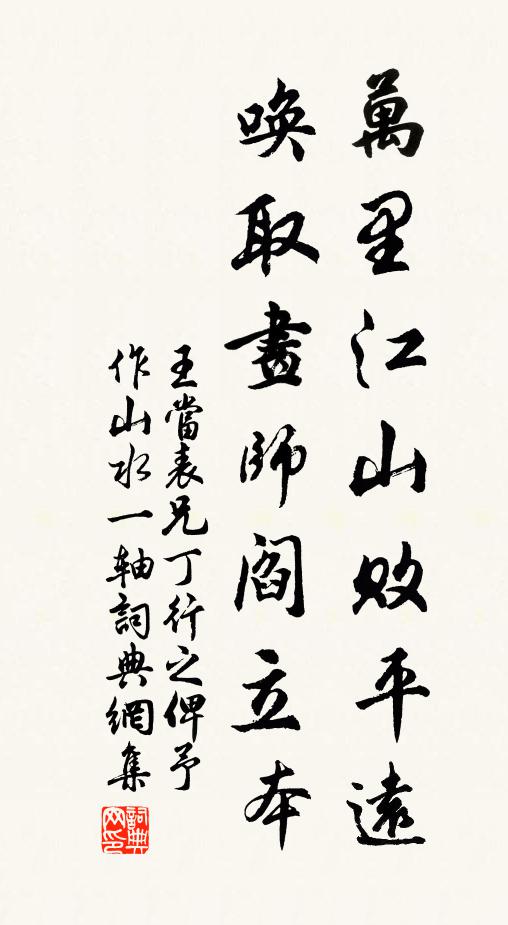 萬里江山敗平遠
喚取畫師閻立本
王當表兄丁行之俾予
作山水一軸詞典網集
詞典
网印